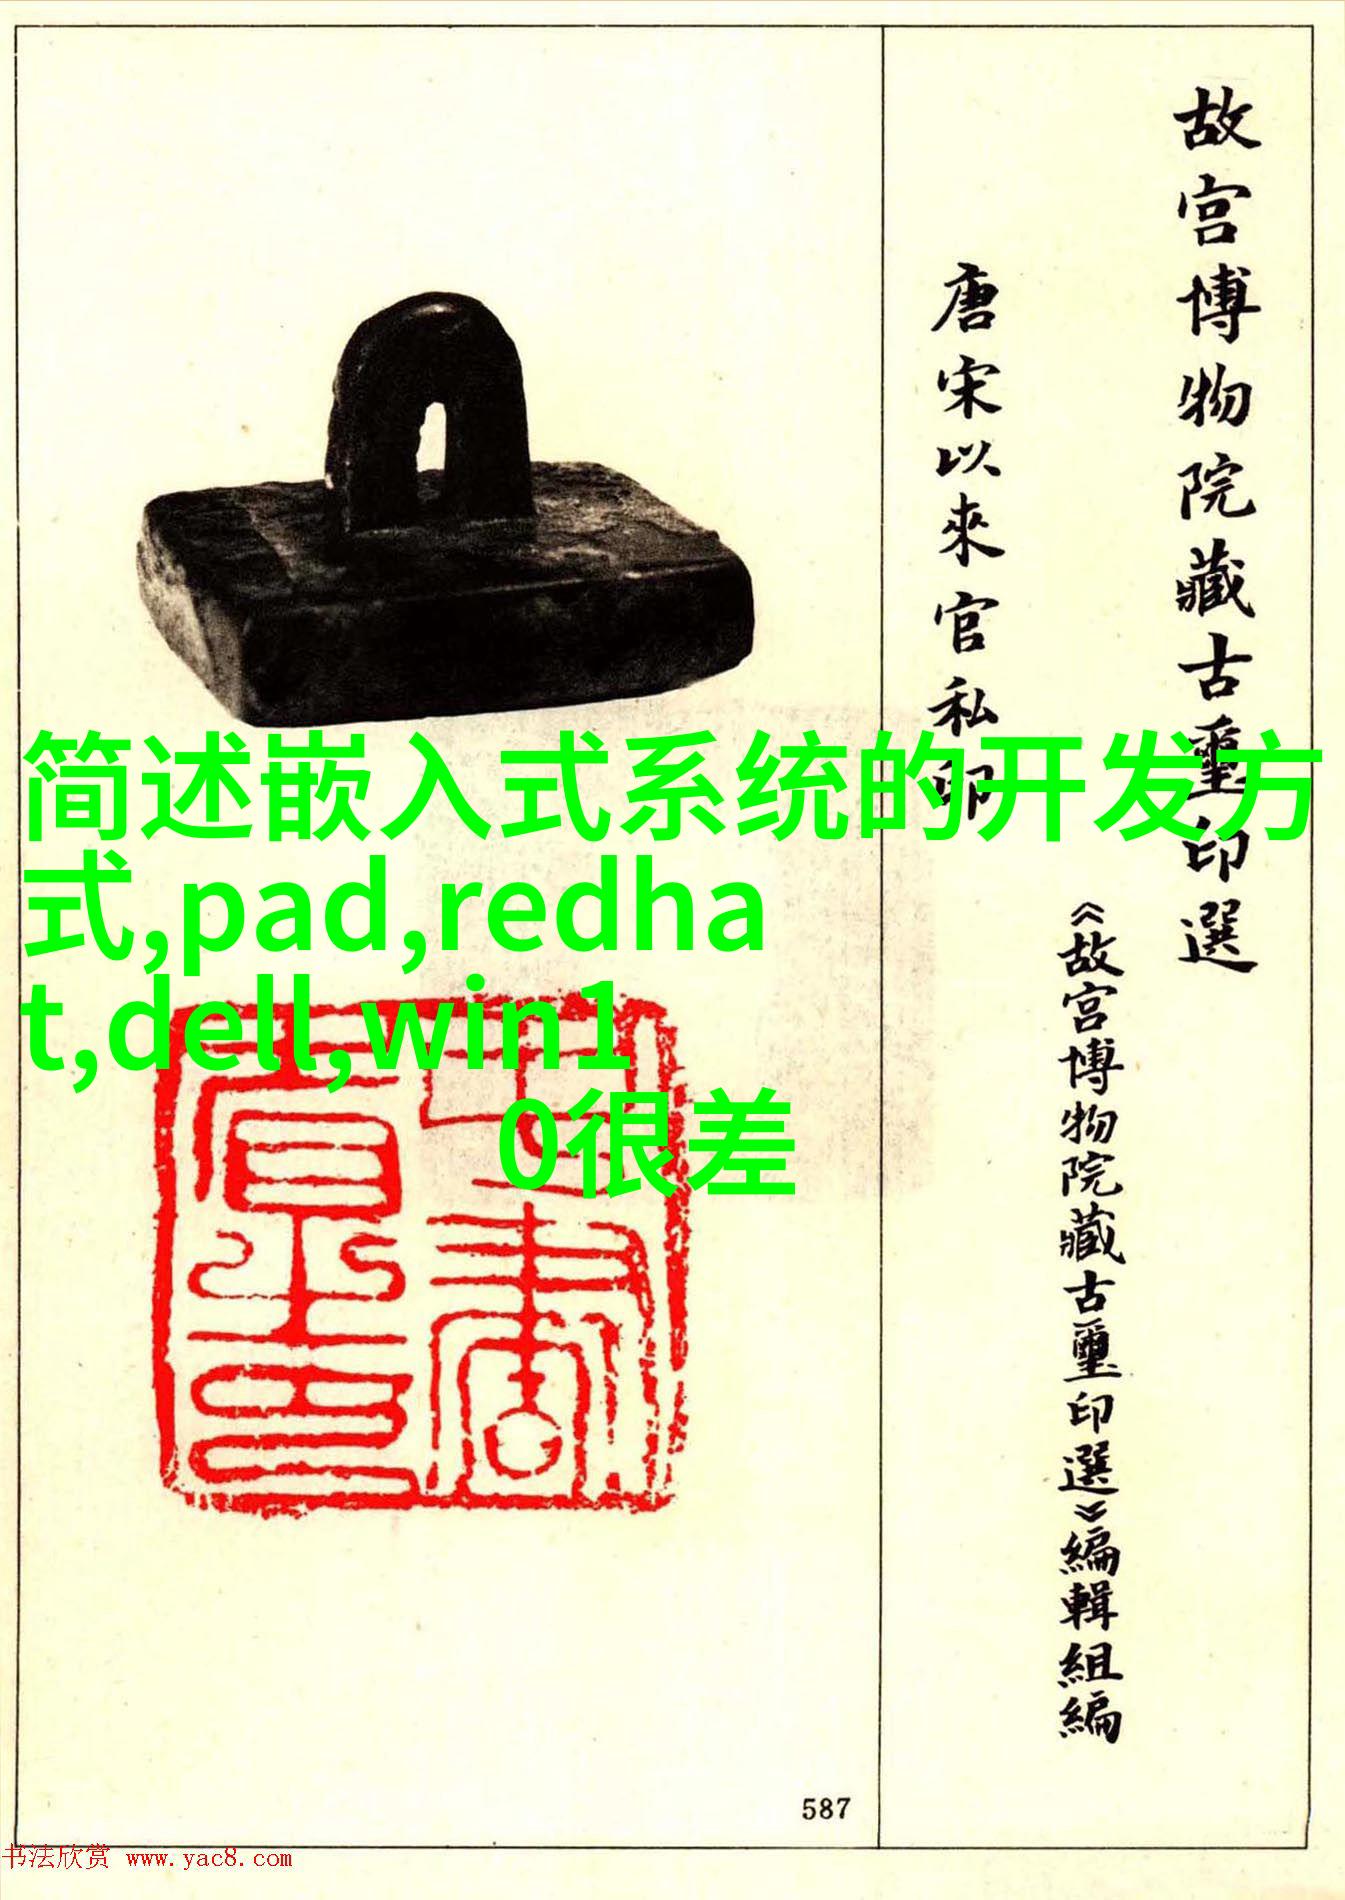 故宫博物院藏古璽印選
唐宋以來官私印
《故宫博物院藏古璽印選》編輯組編
简述嵌入式系统的开发方
式,pad,redha
t,dell,win1
0很差
587
书法欣赏 www.yac8.com